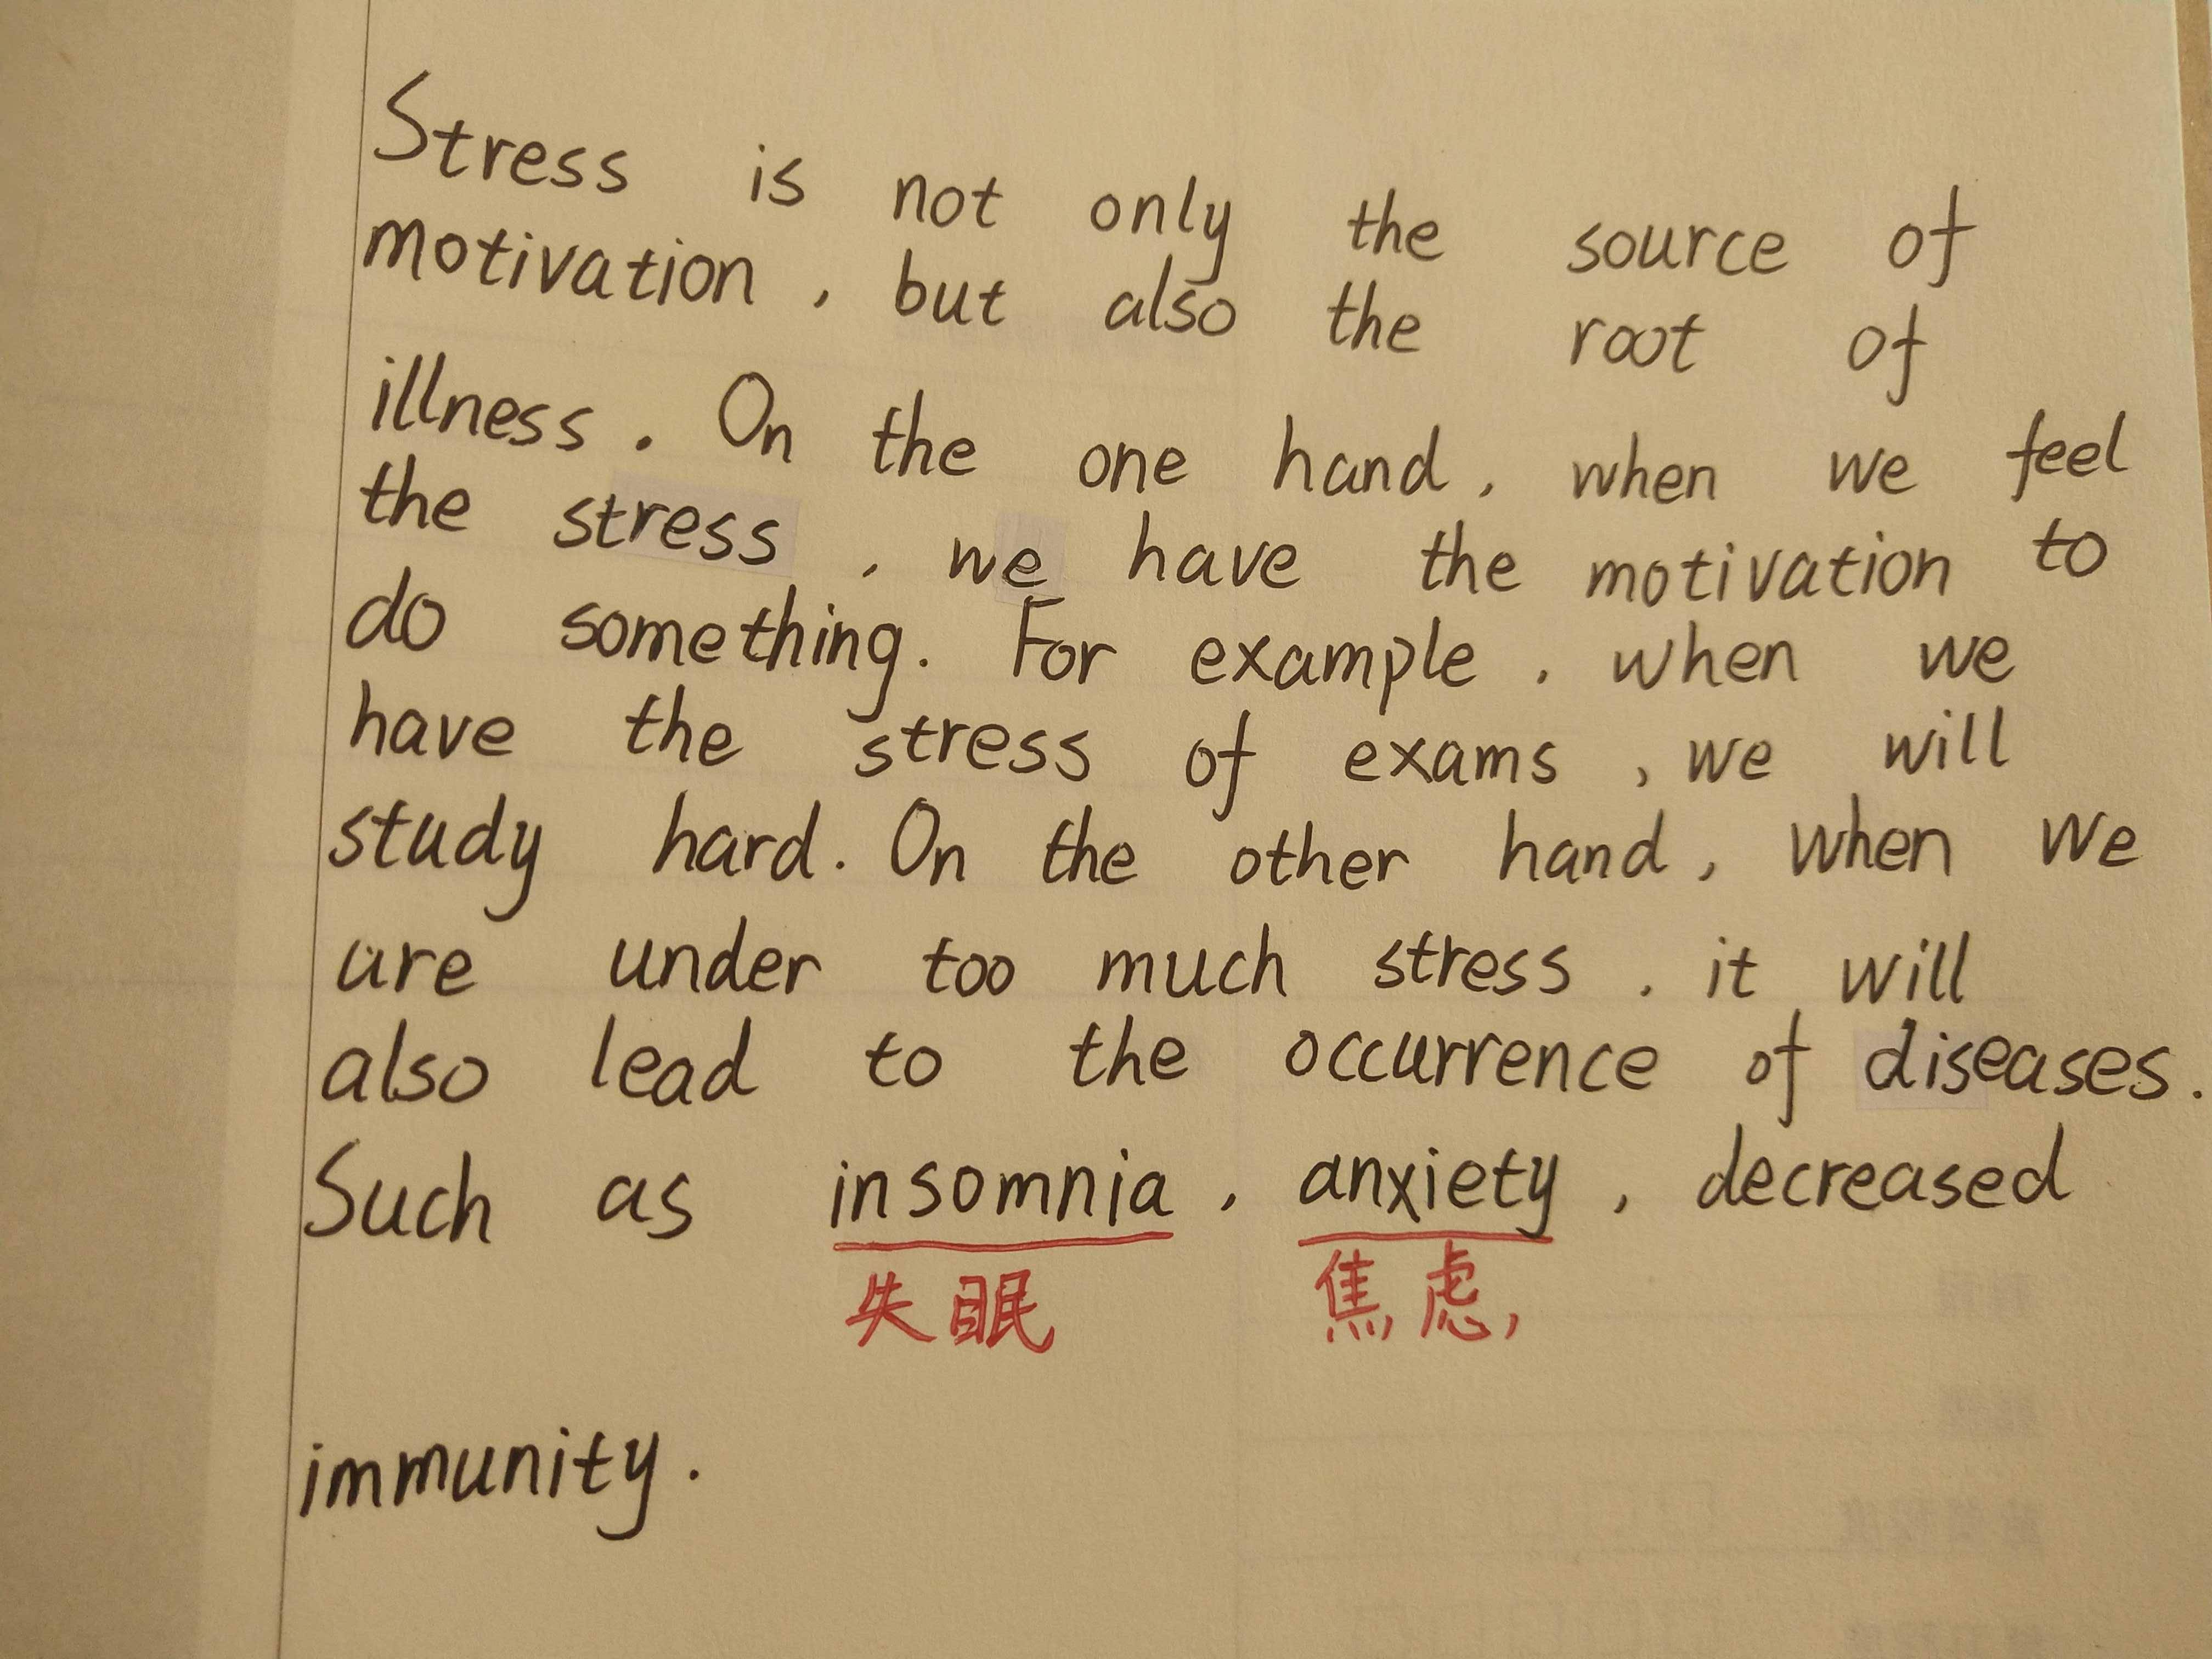 Stress is not only the source of
motivation, but also the root of
illness. On the one hand, when we feel
the stress, we have the motivation to
do something. For example, when we
have the stress of exams, we will
study hard. On the other hand, when we
are under too much stress, it will
also lead to the occurrence of diseases.
Such as insomnia, anxiety, decreased
失眠 焦虑
immunity.